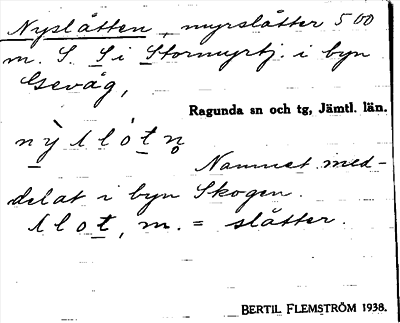 Nyslåtten, myrslåtter 500
m. S. S i Stormyrtj. i byn
Gevåg,
Ragunda sn och tg, Jämtl. län.
Namnet med-
delat i byn Skogen.
m. = slåtter.
BERTIL FLEMSTRÖM 1938.